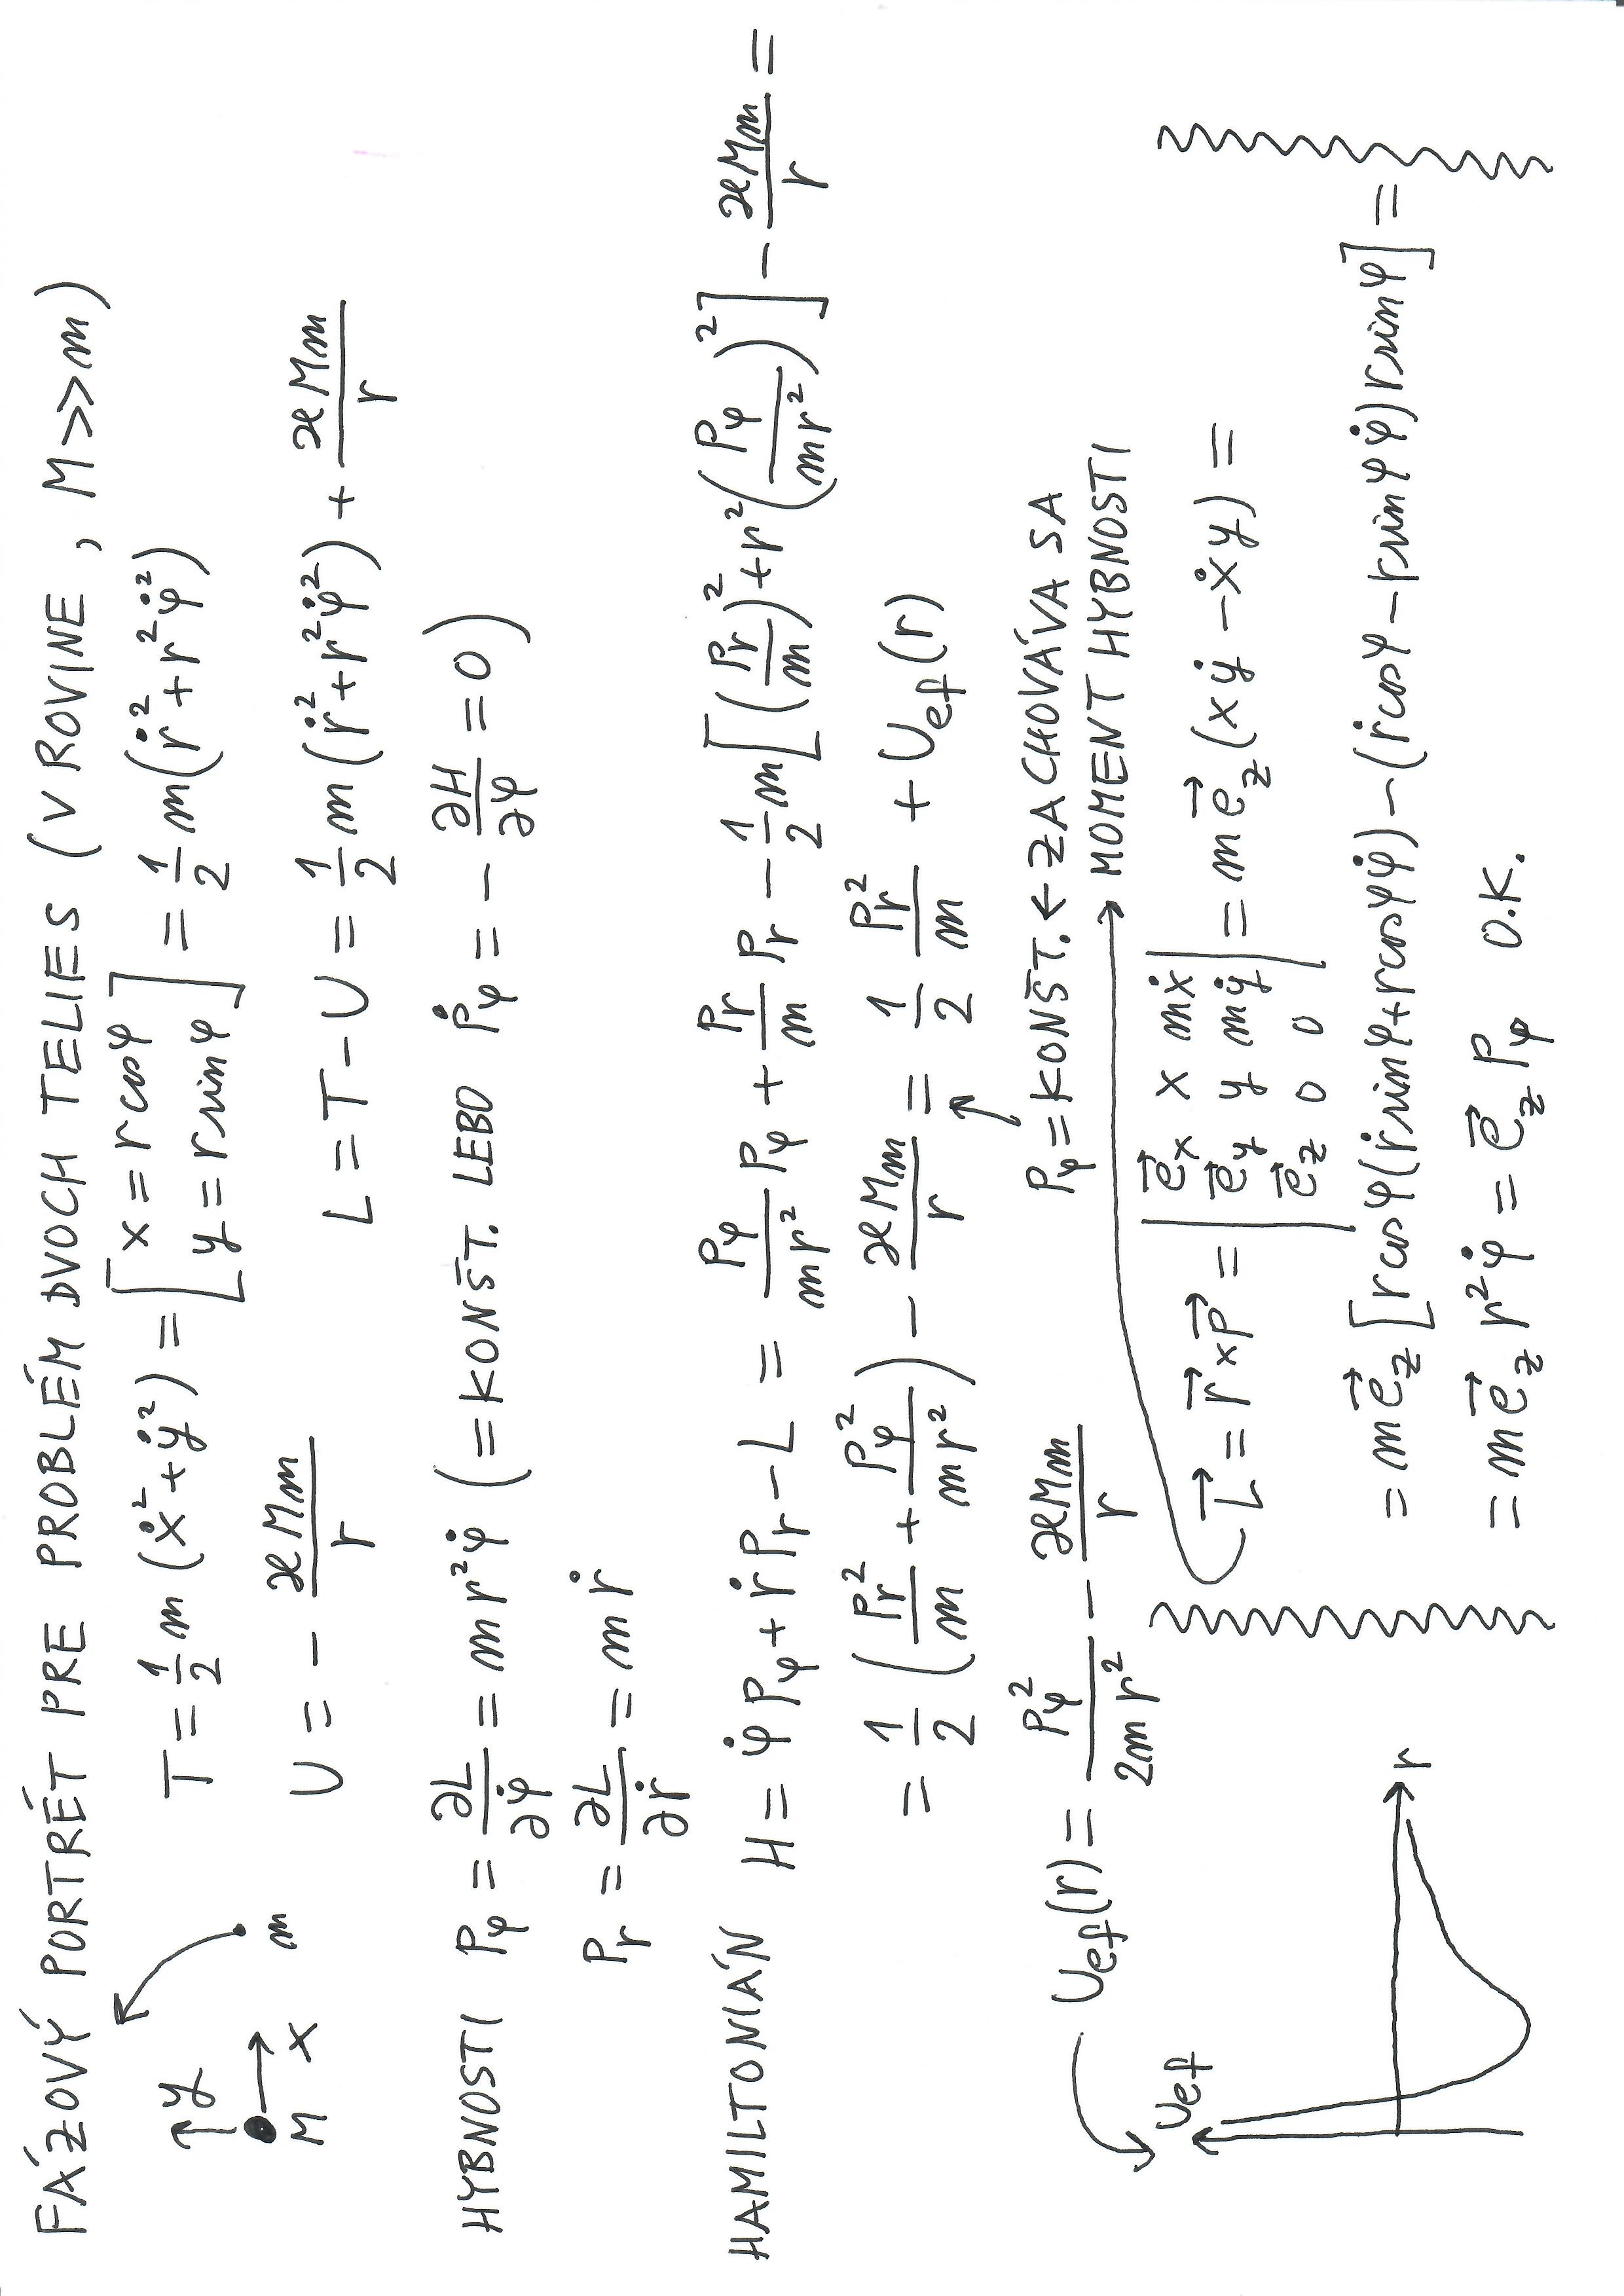 FÁZOVÝ PORTRÉT PRE PROBLÉM DVOCH TELIES (V ROVINE, M >> m)
T = 1/2 m (ẋ² + ẏ²) = [x = r cosφ
y = r sinφ] = 1/2 m(ṙ² + r²φ̇²)
y
M x
m
U = - ϰMm/r
L = T - U = 1/2 m (ṙ² + r²φ̇²) + ϰMm/r
HYBNOSTI Pφ = ∂L/∂φ̇ = m r²φ̇ (= KONŠT. LEBO Ṗφ = - ∂H/∂φ = 0)
Pr = ∂L/∂ṙ = m ṙ
HAMILTONIÁN H = φ̇ Pφ + ṙ Pr - L = Pφ/mr² Pφ + Pr/m Pr - 1/2 m[(Pr/m)² + r²(Pφ/mr²)²] - ϰMm/r =
= 1/2 (Pr²/m + Pφ²/mr²) - ϰMm/r = 1/2 Pr²/m + Uef(r)
Uef(r) = Pφ²/2mr² - ϰMm/r
Pφ = KONŠT. ← ZACHOVÁVA SA
MOMENT HYBNOSTI
Uef
r
L⃗ = r⃗ × P⃗ = |e⃗x x mẋ
e⃗y y mẏ
e⃗z 0 0| = m e⃗z (xẏ - ẋy) =
= m e⃗z [r cosφ(ṙ sinφ + r cosφ φ̇) - (ṙ cosφ - r sinφ φ̇) r sinφ] =
= m e⃗z r²φ̇ = e⃗z Pφ O.K.